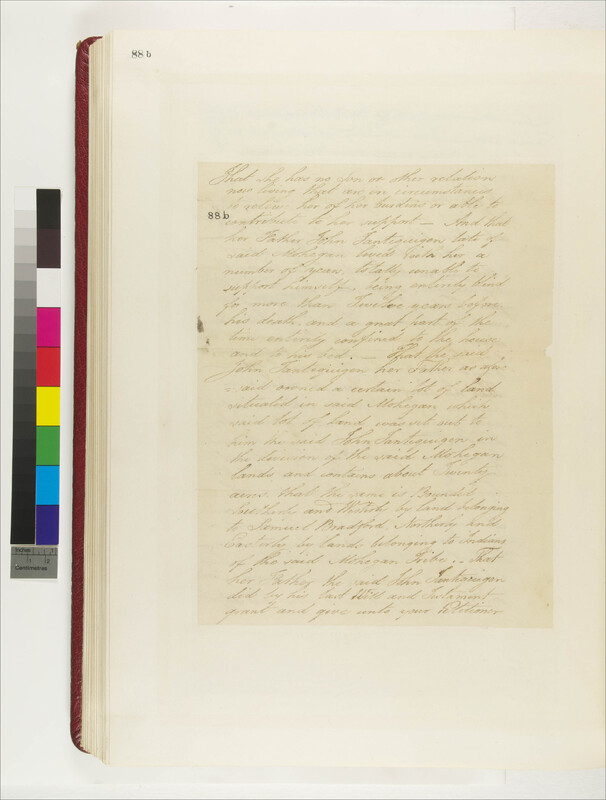 88b
That she has no Son or other relation
now living that are in circumstances
to relieve her of her burdens or able to
88b
contribute to her support — And that
her Father John Tantiquigen late of
said Mohegan lived with her a
number of years totally unable to
support himself, being entirely blind
for more than Twelve years before
his death, and a great part of the
time entirely confined to the house
and to his bed. — That the said
John Tantiquigen her Father as afore
said owned a certain lot of land
situated in said Mohegan which
said lot of land was set out to
him the said John Tantiquigen in
the division of the said Mohegan
lands and contains about Twenty
acres that the same is Bounded
Southerly and Westerly by land belonging
to Samuel Bradford Northerly and
Easterly by lands belonging to Indians
of the said Mohegan Tribe. — That
her Father the said John Tantiquigen
did by his last Will and Testament
grant and give unto your Petitioner
Inches
Centimetres